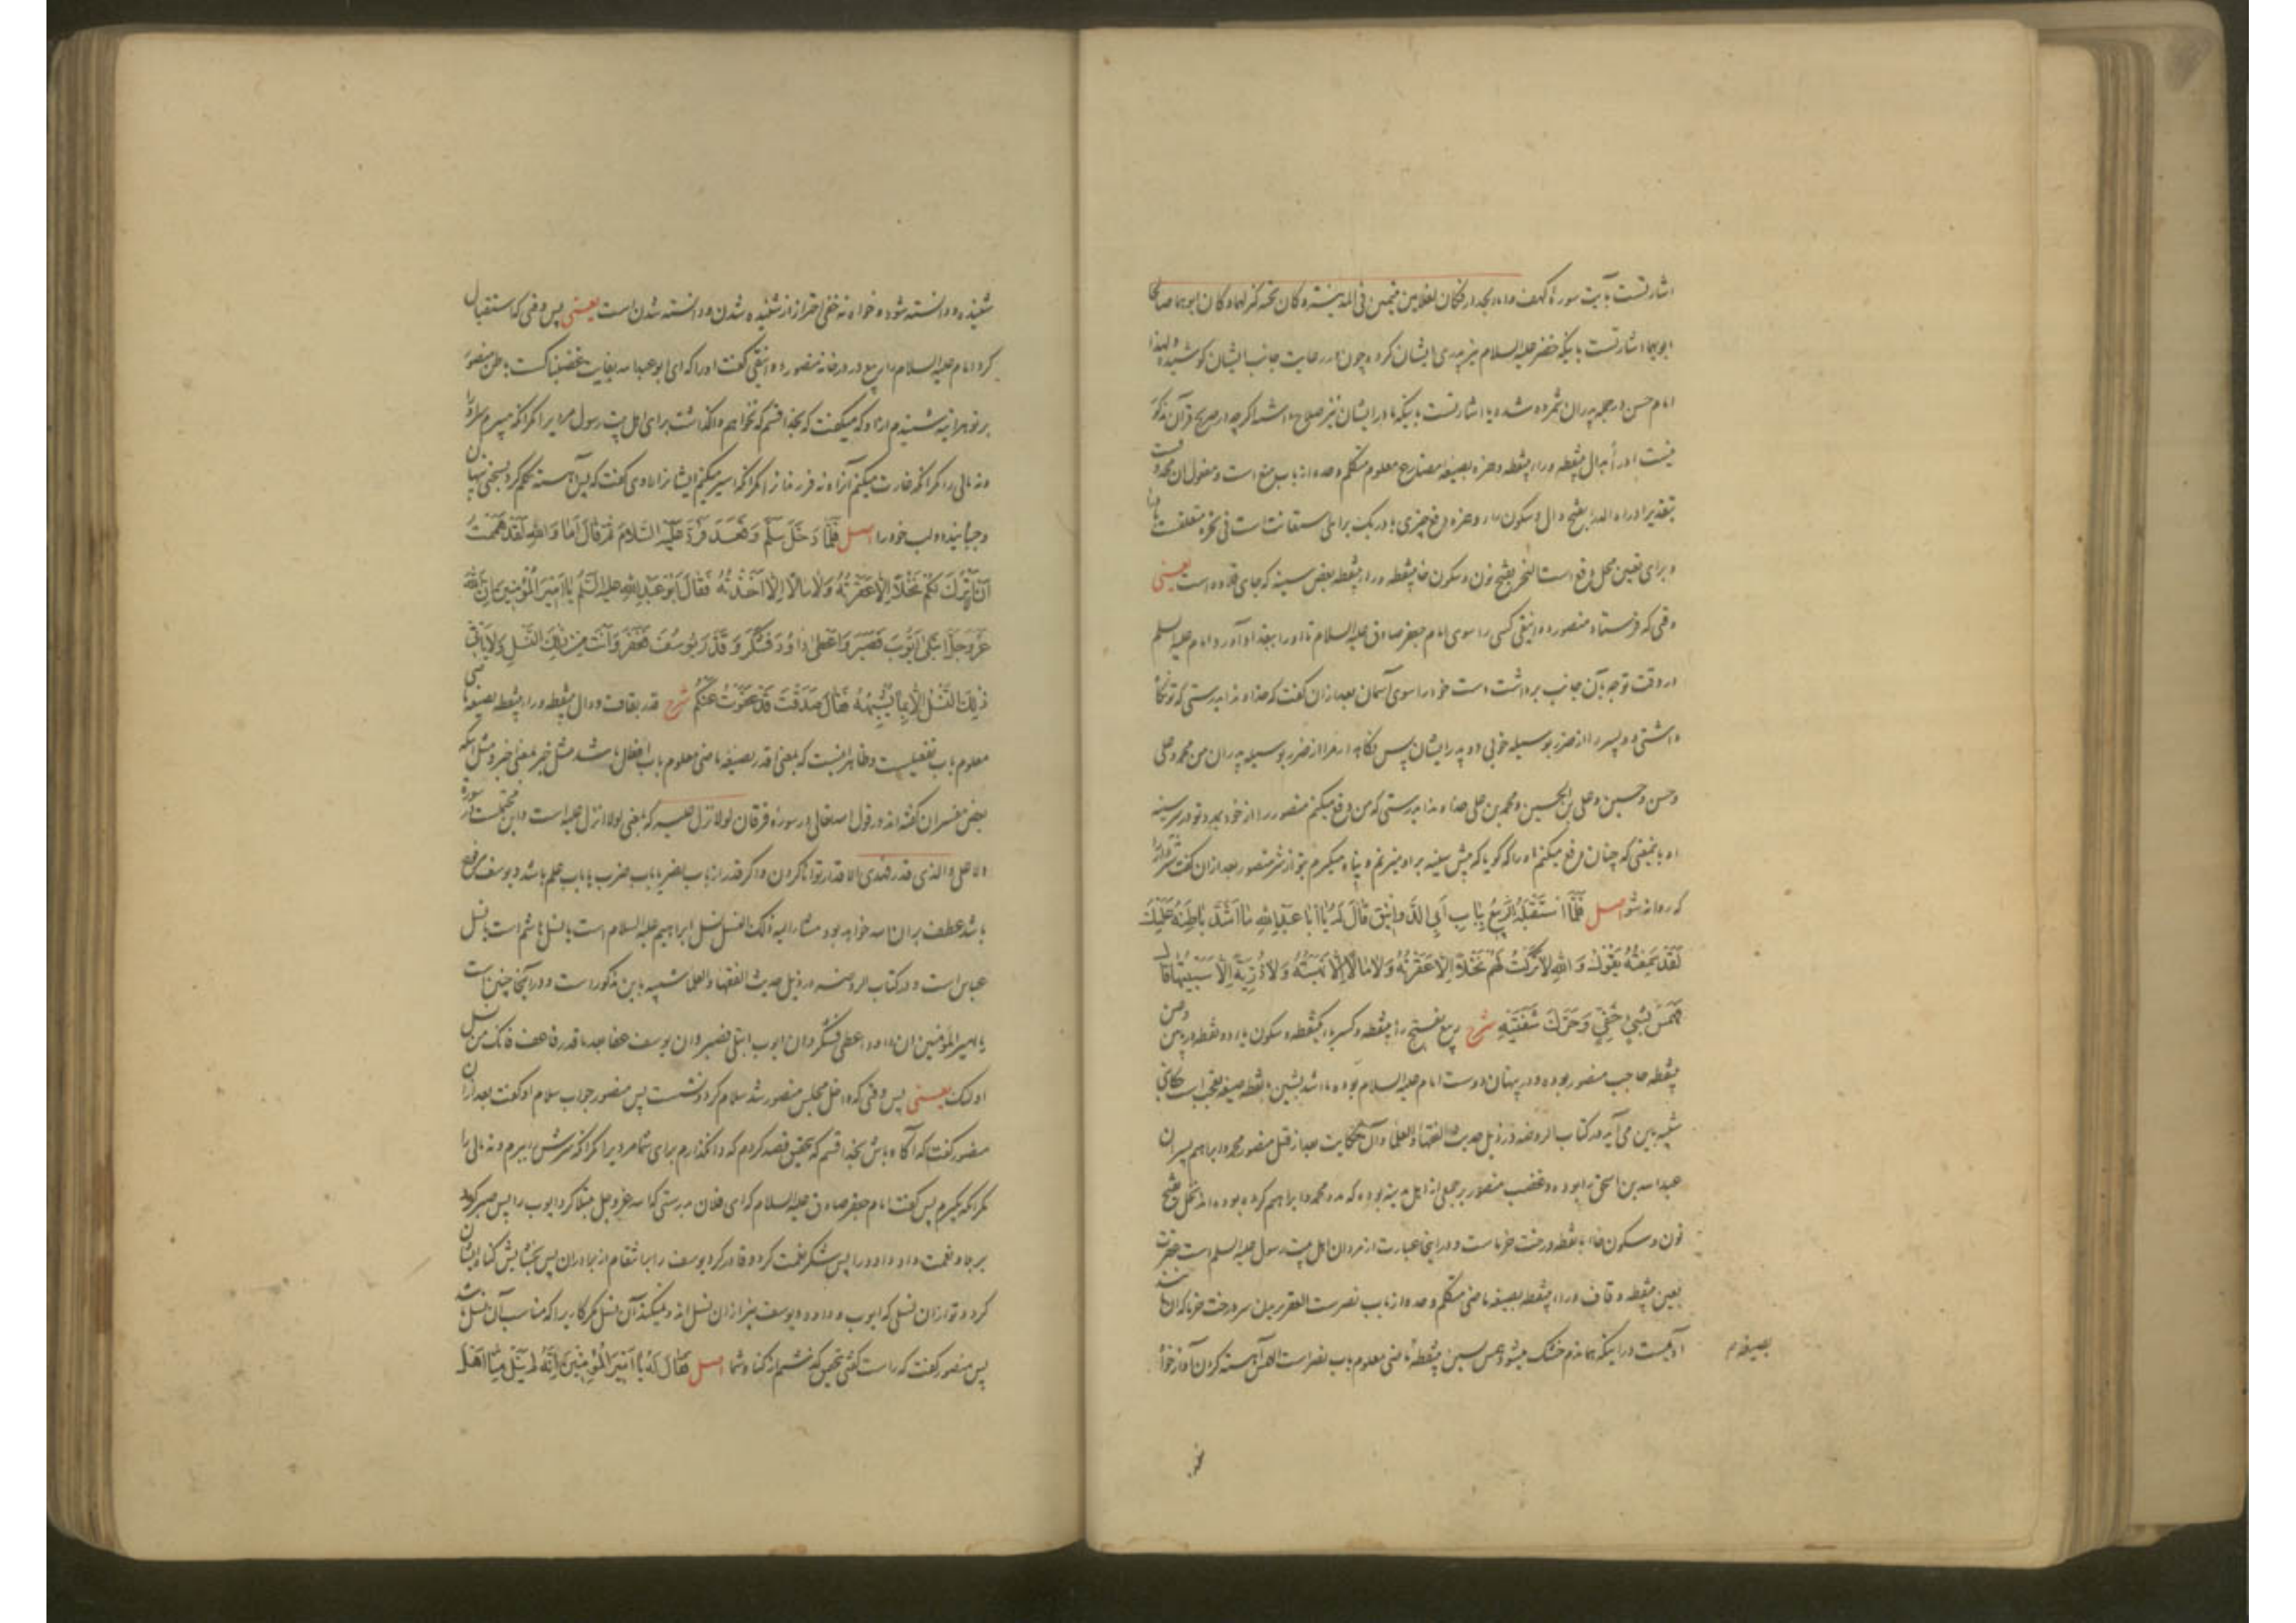 اشارتست بآیت سورهٔ کهف و اما الجدار فکان لغلامین یتیمین فی المدینة و کان تحته کنز لهما و کان ابوهما صالحا
ابوهما اشارتست باینکه خضر علیه السلام نیز پدری ایشان کرده چون در رعایت جانب ایشان کوشیده لهذا
امام حسن در جمله پدران شمرده شده یا اشارتست باینکه مادر ایشان نیز صلاح داشته اگرچه در صریح قرآن مذکور
نیست ادرأ بدال بینقطه و راء بینقطه و همزه بصیغه مضارع معلوم متکلم وحده از باب منع است و مفعول آن محذوفست
بتقدیر ادراه الدرء بفتح دال و سکون راء و همزه دفع چیزی باء در بک برای استعانت است فی نحره متعلقست بادرا
و برای تعیین محل دفع است النحر بفتح نون و سکون حاء بینقطه و راء بینقطه بعض سینه که جای قلاده است یعنی
وقتی که فرستاد منصور دوانیقی کسی را سوی امام جعفر صادق علیه السلام تا او را ببغداد آورد امام علیه السلم
در وقت توجه بآن جانب برداشت دست خود را سوی آسمان بعد از آن گفت که خداوندا بدرستی که تو نگاه
داشتی دو پسر را از ضرر بوسیله خوبی دو پدر ایشان پس نگاه دار مرا از ضرر بوسیله پدران من محمد و علی
و حسن و حسین و علی بن الحسین و محمد بن علی خداوندا بدرستی که من دفع میکنم منصور را از خود بمدد تو در سینه
او بمیعنی که چنان دفع میکنم او را که گویا که پیش سینه بر او میزنم و پناه میگیرم بتو از شر منصور بعد از آن گفت شتربانرا
که روانه شو اصل فَلَمَّا اسْتَقْبَلَهُ الرَّبِیعُ بِبَابِ أَبِی الدَّوَانِیقِ قَالَ لَهُ یَا أَبَا عَبْدِ اللهِ مَا أَشَدَّ بَاطِنَهُ عَلَیْكَ
لَقَدْ سَمِعْتُهُ یَقُولُ وَاللهِ لَا تَرَكْتُ لَهُمْ نَخْلًا إِلَّا عَقَرْتُهُ وَلَا مَالًا إِلَّا نَهَبْتُهُ وَلَا ذُرِّیَّةً إِلَّا سَبَیْتُهَا قَالَ
هَمَسَ بِشَیْءٍ خَفِیٍّ وَحَرَّكَ شَفَتَیْهِ شرح ربیع بفتح راء بینقطه و کسر باء یکنقطه و سکون یاء دو نقطه در پایین و عین
بینقطه حاجب منصور بوده و در پنهان دوست امام علیه السلام بوده ما اشد بشین بانقطه صیغه تعجب است حکایتی
شبیه باین می آید در کتاب الروضه در ذیل حدیث الفقهاء و العلماء و آن حکایت بعد از قتل منصور محمد و ابراهیم پسران
عبدالله بن الحسن را بوده و غضب منصور بر جمعی از اهل مدینه بوده که مدد محمد و ابراهیم کرده بوده اند نخل بفتح
نون و سکون خاء بانقطه درخت خرماست و در اینجا عبارت از مردان اهل بیت رسول علیه السلم است عقرت
بعین بینقطه و قاف و راء بینقطه بصیغه ماضی متکلم وحده از باب ضربست العقر بریدن سر درخت خرما که آن مانند
آدمیست در اینکه هماندم خشک میشود همس بسین بینقطه ماضی معلوم باب نصر است الهمس آهسته کردن آواز خواه
بصیغه م
شنیده و دانسته شود و خواه نه خفی احتراز از شنیده شدن و دانسته شدن است یعنی پس وقتی که استقبال
کرد امام علیه السلام را ربیع در درخانه منصور دوانیقی گفت او را که ای ابو عبدالله بغایت غضبناکست باطن منصور
بر تو هر آینه شنیدم از او که میگفت که بخدا قسم که نخواهم واگذاشت برای اهل بیت رسول مردیرا مگر آنکه میبرم سر او را
و نه مالی را مگر آنکه غارت میکنم آنرا و نه فرزندانرا مگر آنکه اسیر میکنم ایشانرا راوی گفت که پس آهسته تکلم کرد بسخنی پنهان
و جنبانید دو لب خود را اصل فَلَمَّا دَخَلَ سَلَّمَ وَقَعَدَ فَرَدَّ عَلَیْهِ السَّلَامَ ثُمَّ قَالَ أَمَا وَاللهِ لَقَدْ هَمَمْتُ
أَنْ لَا أَتْرُكَ لَكُمْ نَخْلًا إِلَّا عَقَرْتُهُ وَلَا مَالًا إِلَّا أَخَذْتُهُ فَقَالَ أَبُو عَبْدِ اللهِ علیه السّلم یَا أَمِیرَ الْمُؤْمِنِینَ إِنَّ اللهَ
عَزَّ وَجَلَّ ابْتَلَى أَیُّوبَ فَصَبَرَ وَأَعْطَى دَاوُدَ فَشَكَرَ وَقَدَّرَ یُوسُفَ فَغَفَرَ وَأَنْتَ مِنْ ذٰلِكَ النَّسْلِ وَلَا یَأْتِی
ذٰلِكَ النَّسْلُ إِلَّا بِمَا یُشْبِهُهُ فَقَالَ صَدَقْتَ قَدْ عَفَوْتُ عَنْكُمْ شرح قدر بقاف و دال بینقطه و راء بینقطه بصیغه ماضی
معلوم باب تفعیلست و ظاهر اینست که بمعنی اقدر بصیغه ماضی معلوم باب افعال باشد مثل خبر بمعنی اخبر و مثل آنکه
بعض مفسران گفته اند در قول الله تعالی در سورهٔ فرقان لولا نزل علیه که بمعنی لولا انزل علیه است و این محتملست در سورة
الاعلی و الذی قدر فهدی الاقدار توانا کردن و اگر قدر از باب نصر یا باب ضرب یا باب علم باشد و یوسف مرفوع
باشد عطف بر ان الله خواهد بود مشار الیه ذلک النسل نسل ابراهیم علیه السلام است یا نسل هاشم است یا نسل
عباس است و در کتاب الروضه در ذیل حدیث الفقها و العلما شبیه باین مذکور است و در آنجا چنین است
یا امیر المؤمنین ان داود اعطی فشکر و ان ایوب ابتلی فصبر و ان یوسف عفا بعد ما قدر فاعف فانک من نسل
اولئک یعنی پس وقتی که داخل مجلس منصور شد سلام کرد و نشست پس منصور جواب سلام او گفت بعد از آن
منصور گفت که آگاه باش بخدا قسم که بتحقیق قصد کردم که وانگذارم برای شما مردیرا مگر آنکه سرش ببرم و نه مالی را
مگر آنکه بگیرم پس گفت امام جعفر صادق علیه السلام که ای فلان بدرستی که الله عز و جل مبتلا کرد ایوب را پس صبر کرد
بر بلا و نعمت داد داود را پس شکر نعمت کرد و قادر کرد یوسف را بر انتقام از برادران پس بخشایش گناه ایشان
کرد و تو از آن نسلی که ایوب و داود و یوسف نیز از آن نسل اند و نمیکند آن نسل مگر کاریرا که مناسب آن نسل باشد
پس منصور گفت که راست گفتی بتحقیق گذشتم از گناه شما اصل فَقَالَ لَهُ یَا أَمِیرَ الْمُؤْمِنِینَ إِنَّهُ لَمْ یَنَلْ مِنَّا أَهْلَ